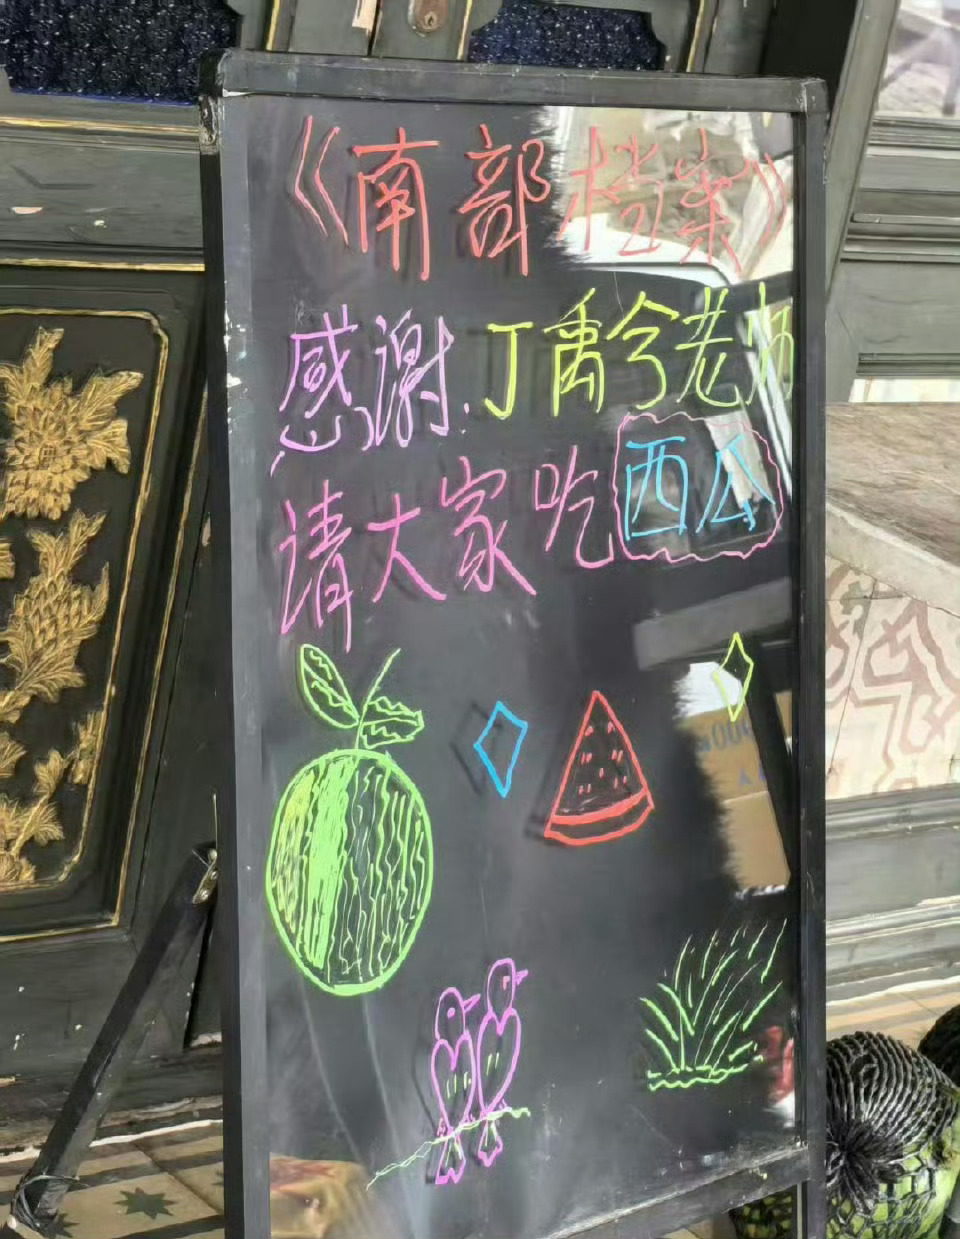 《南部档案》
感谢:丁禹兮老师
请大家吃西瓜